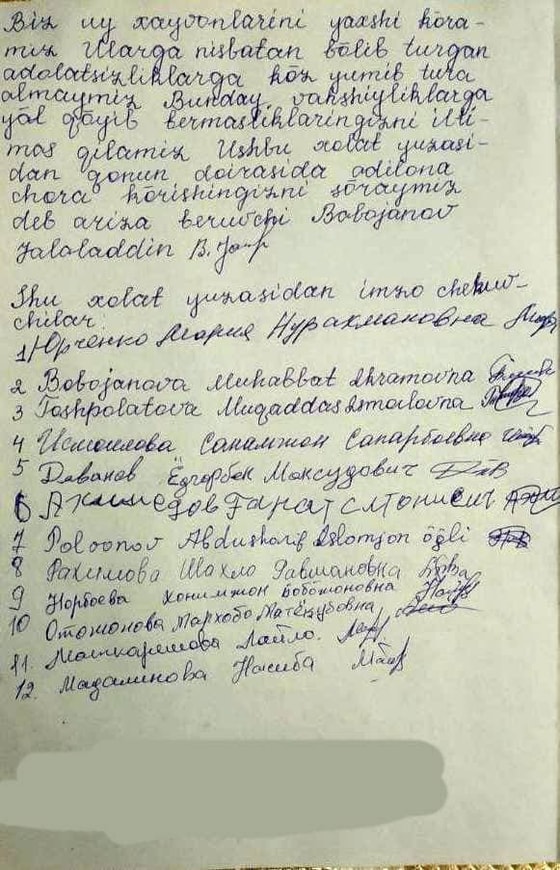 Biz uy xayvonlarini yaxshi kōra-
miz Ularga nisbatan bōlib turgan
adolatsizliklarga kōz yumib tura
olmaymiz Bunday, vahshiyliklarga
yōl qōyib bermasliklaringizni ilti-
mos qilamiz Ushbu xolat yuzasi-
dan qonun doirasida adilona
chora kōrishingizni sōraymiz
deb ariza beruvchi Bobojanov
Jaloladdin B.
Shu xolat yuzasidan imzo chekuv-
chilar.
1 Юрченко Мария Нурахмановна
2 Bobojanova Muhabbat Ikramovna
3 Toshpolatova Muqaddas Ismoilovna
4 Исмоилова Санамжон Сапарбоевна
5 Даванов Ёдгорбек Максудович
6
7 Polvonov Abdusharif Islomjon ōğli
8 Рахимова Шахло Равшановна
9 Норбоева Хонимжон Боботоновна
10 Отожонова Мархабо Матёкубовна
11. Машкаримова Лайло.
12. Мадаминова Насиба